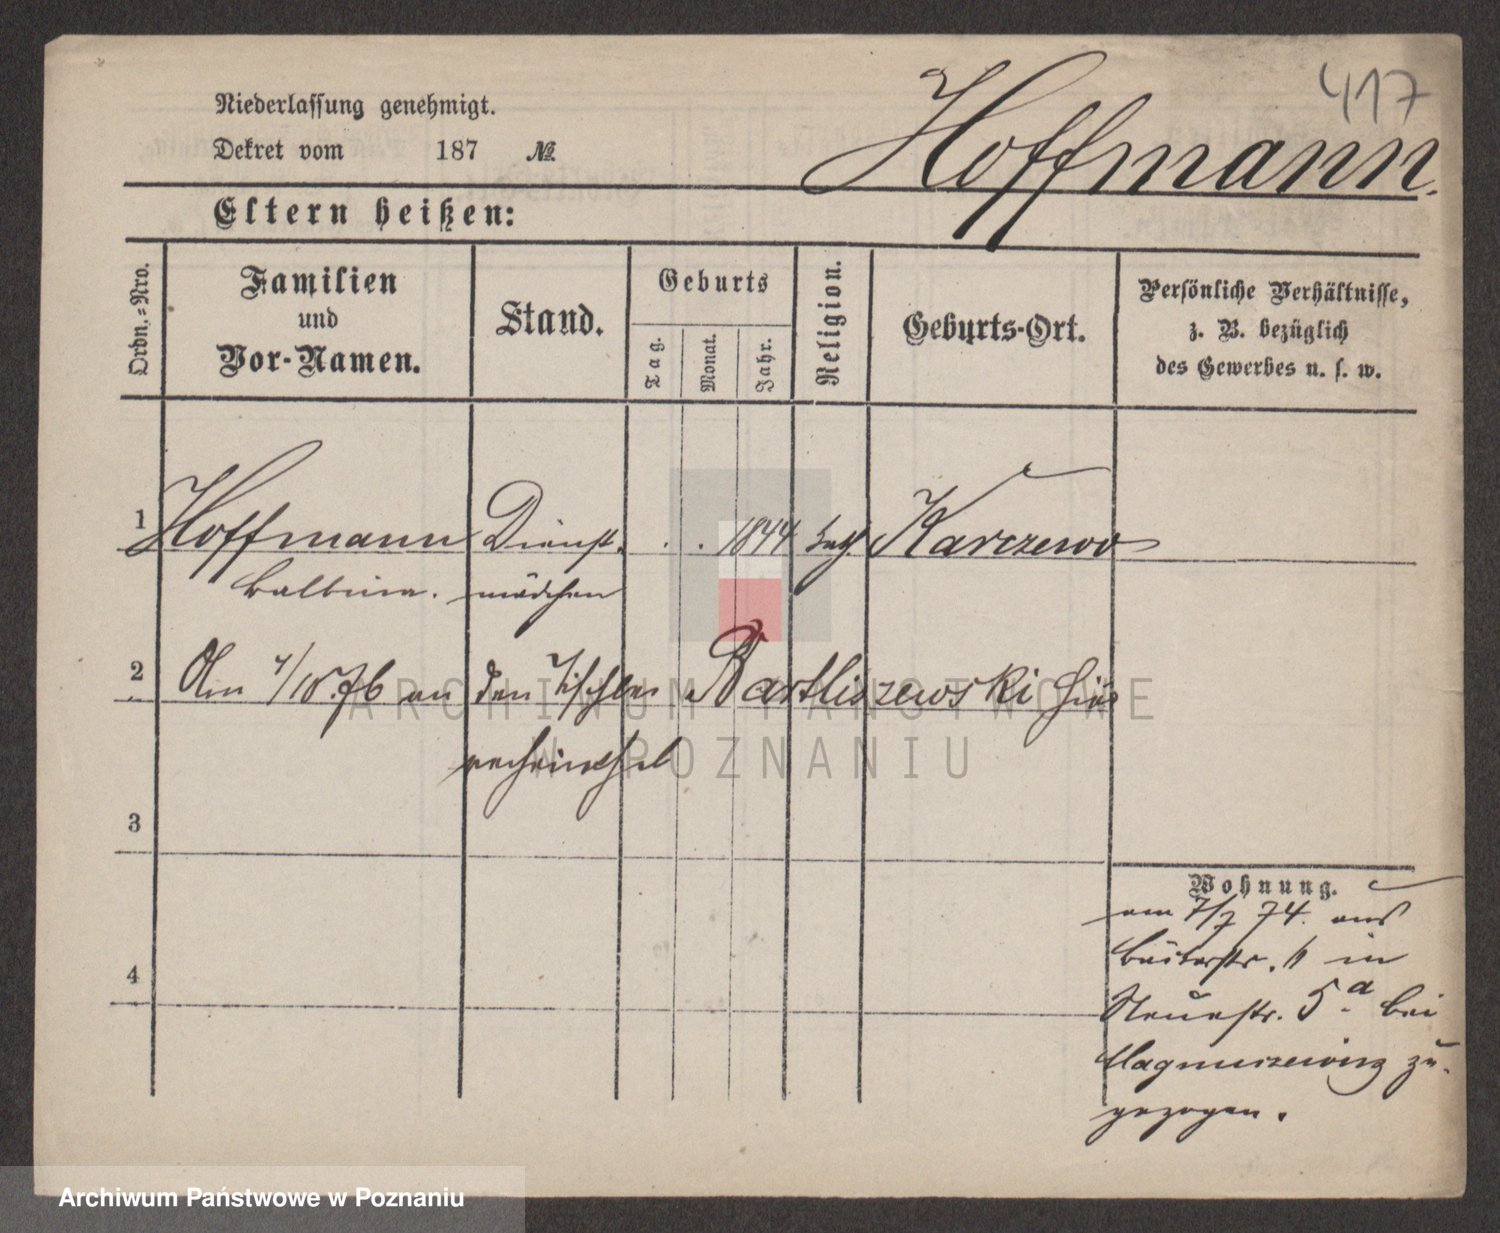 417
Niederlassung genehmigt.
Dekret vom 187 №
Hoffmann.
Eltern heißen:
Ordn.-Nro.
Familien
und
Vor-Namen.
Stand.
Geburts
Tag.
Monat.
Jahr.
Religion.
Geburts-Ort.
Persönliche Verhältnisse,
z. B. bezüglich
des Gewerbes u. s. w.
1 Hoffmann Dienst- . . 1844 kath. Karczewo
Balbina. mädchen
2 Am 4/10.76 an den Tischler Bartliszewski hier
verheirathet
3
Wohnung.
am 7/7 74. aus
in
4
Neuestr. 5a. bei
zu-
gezogen.
ARCHIWUM PAŃSTWOWE
W POZNANIU
Archiwum Państwowe w Poznaniu